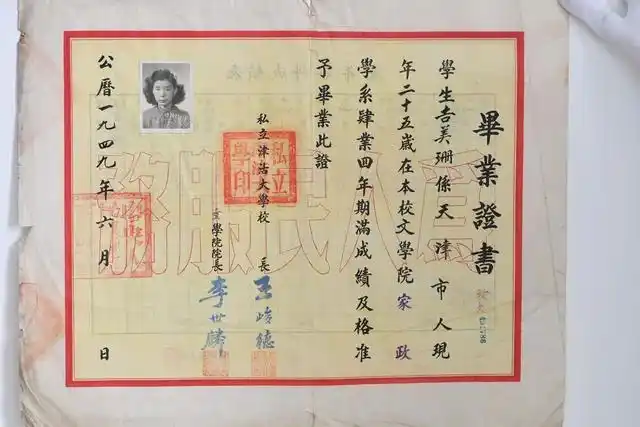 畢業證書
學生吉美珊係天津市人現
年二十五歲在本校文學院家政
學系肄業四年期滿成績及格准
予畢業此證
私立津沽大學校長 王峻德
文學院院長 李世麟
公曆一九四九年六月 日
私立津沽大學印
為人民服務